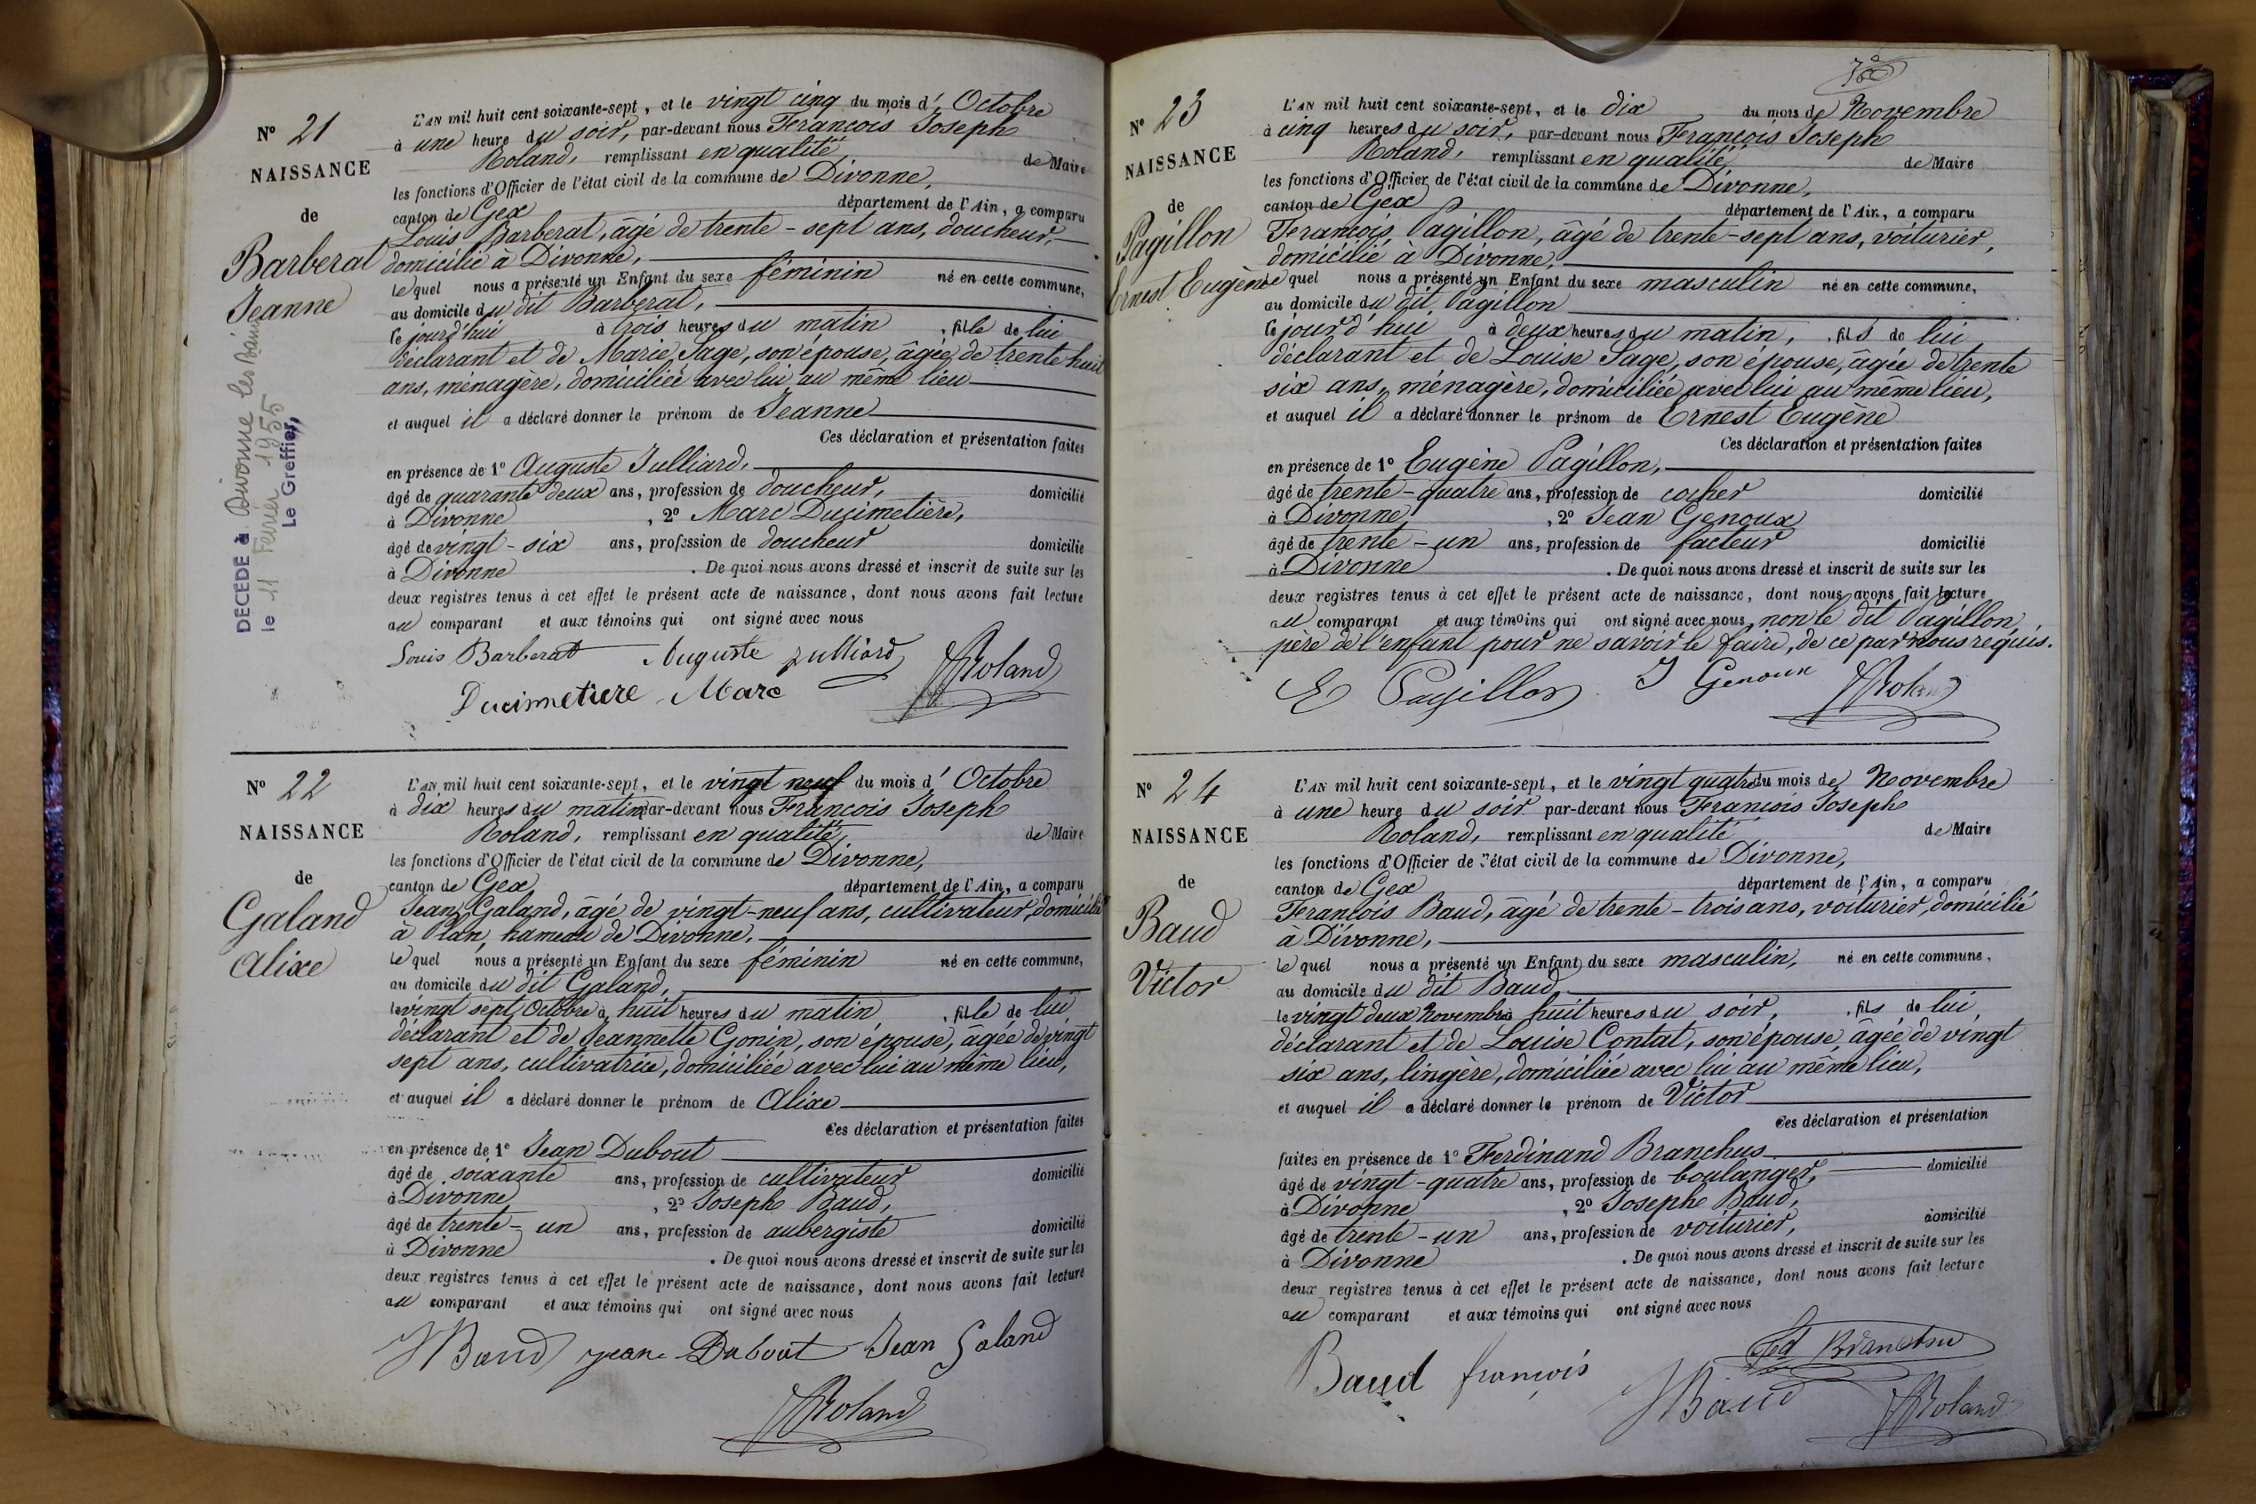 N° 21
NAISSANCE
de
Barberat
Jeanne
DECEDE à Divonne les Bains
le 11 Février 1955
Le Greffier,
L'AN mil huit cent soixante-sept, et le vingt cinq du mois d' Octobre
à une heure du soir, par-devant nous François Joseph
Roland, remplissant en qualité de Maire
les fonctions d'Officier de l'état civil de la commune de Divonne,
canton de Gex département de l'Ain, a comparu
Louis Barberat, âgé de trente-sept ans, doucheur,
domicilié à Divonne,
lequel nous a présenté un Enfant du sexe féminin né en cette commune,
au domicile du dit Barberat,
ce jourd'hui à trois heures du matin, fille de lui
déclarant et de Marie Sage, son épouse, âgée de trente huit
ans, ménagère, domiciliée avec lui au même lieu
et auquel il a déclaré donner le prénom de Jeanne
Ces déclaration et présentation faites
en présence de 1° Auguste Julliard,
âgé de quarante deux ans, profession de doucheur, domicilié
à Divonne, 2° Marc Ducimetière,
âgé de vingt-six ans, profession de doucheur domicilié
à Divonne. De quoi nous avons dressé et inscrit de suite sur les
deux registres tenus à cet effet le présent acte de naissance, dont nous avons fait lecture
au comparant et aux témoins qui ont signé avec nous
Louis Barberat Auguste Julliard JRoland
Ducimetiere Marc
N° 22
NAISSANCE
de
Galand
Alixe
L'AN mil huit cent soixante-sept, et le vingt neuf du mois d' Octobre
à dix heures du matin par-devant nous François Joseph
Roland, remplissant en qualité de Maire
les fonctions d'Officier de l'état civil de la commune de Divonne,
canton de Gex département de l'Ain, a comparu
Jean Galand, âgé de vingt-neuf ans, cultivateur, domicilié
à Plan, hameau de Divonne,
lequel nous a présenté un Enfant du sexe féminin né en cette commune,
au domicile du dit Galand,
le vingt sept Octobre à huit heures du matin, fille de lui
déclarant et de Jeannette Gonin, son épouse, âgée de vingt
sept ans, cultivatrice, domiciliée avec lui au même lieu,
et auquel il a déclaré donner le prénom de Alixe
Ces déclaration et présentation faites
en présence de 1° Jean Dubout
âgé de soixante ans, profession de cultivateur domicilié
à Divonne, 2° Joseph Baud,
âgé de trente-un ans, profession de aubergiste domicilié
à Divonne. De quoi nous avons dressé et inscrit de suite sur les
deux registres tenus à cet effet le présent acte de naissance, dont nous avons fait lecture
au comparant et aux témoins qui ont signé avec nous
JBaud jean Dubout Jean Galand
JRoland
N° 23
NAISSANCE
de
Pagillon
Ernest Eugène
L'AN mil huit cent soixante-sept, et le dix du mois de Novembre
à cinq heures du soir, par-devant nous François Joseph
Roland, remplissant en qualité de Maire
les fonctions d'Officier de l'état civil de la commune de Divonne,
canton de Gex département de l'Ain, a comparu
François Pagillon, âgé de trente-sept ans, voiturier,
domicilié à Divonne,
lequel nous a présenté un Enfant du sexe masculin né en cette commune,
au domicile du dit Pagillon
ce jourd'hui à deux heures du matin, fils de lui
déclarant et de Louise Sage, son épouse, âgée de trente
six ans, ménagère, domiciliée avec lui au même lieu,
et auquel il a déclaré donner le prénom de Ernest Eugène
Ces déclaration et présentation faites
en présence de 1° Eugène Pagillon,
âgé de trente-quatre ans, profession de cocher domicilié
à Divonne, 2° Jean Genoux
âgé de trente-un ans, profession de facteur domicilié
à Divonne. De quoi nous avons dressé et inscrit de suite sur les
deux registres tenus à cet effet le présent acte de naissance, dont nous avons fait lecture
au comparant et aux témoins qui ont signé avec nous, non le dit Pagillon
père de l'enfant pour ne savoir le faire, de ce par nous requis.
E Pagillon J Genoux JRoland
N° 24
NAISSANCE
de
Baud
Victor
L'AN mil huit cent soixante-sept, et le vingt quatre du mois de Novembre
à une heure du soir par-devant nous François Joseph
Roland, remplissant en qualité de Maire
les fonctions d'Officier de l'état civil de la commune de Divonne,
canton de Gex département de l'Ain, a comparu
François Baud, âgé de trente-trois ans, voiturier, domicilié
à Divonne,
lequel nous a présenté un Enfant du sexe masculin, né en cette commune,
au domicile du dit Baud
le vingt deux Novembre à huit heures du soir, fils de lui
déclarant et de Louise Contat, son épouse, âgée de vingt
six ans, lingère, domiciliée avec lui au même lieu,
et auquel il a déclaré donner le prénom de Victor
Ces déclaration et présentation
faites en présence de 1° Ferdinand Branchus
âgé de vingt-quatre ans, profession de boulanger, domicilié
à Divonne, 2° Joseph Baud,
âgé de trente-un ans, profession de voiturier, domicilié
à Divonne. De quoi nous avons dressé et inscrit de suite sur les
deux registres tenus à cet effet le présent acte de naissance, dont nous avons fait lecture
au comparant et aux témoins qui ont signé avec nous
Baud françois JBaud JRoland